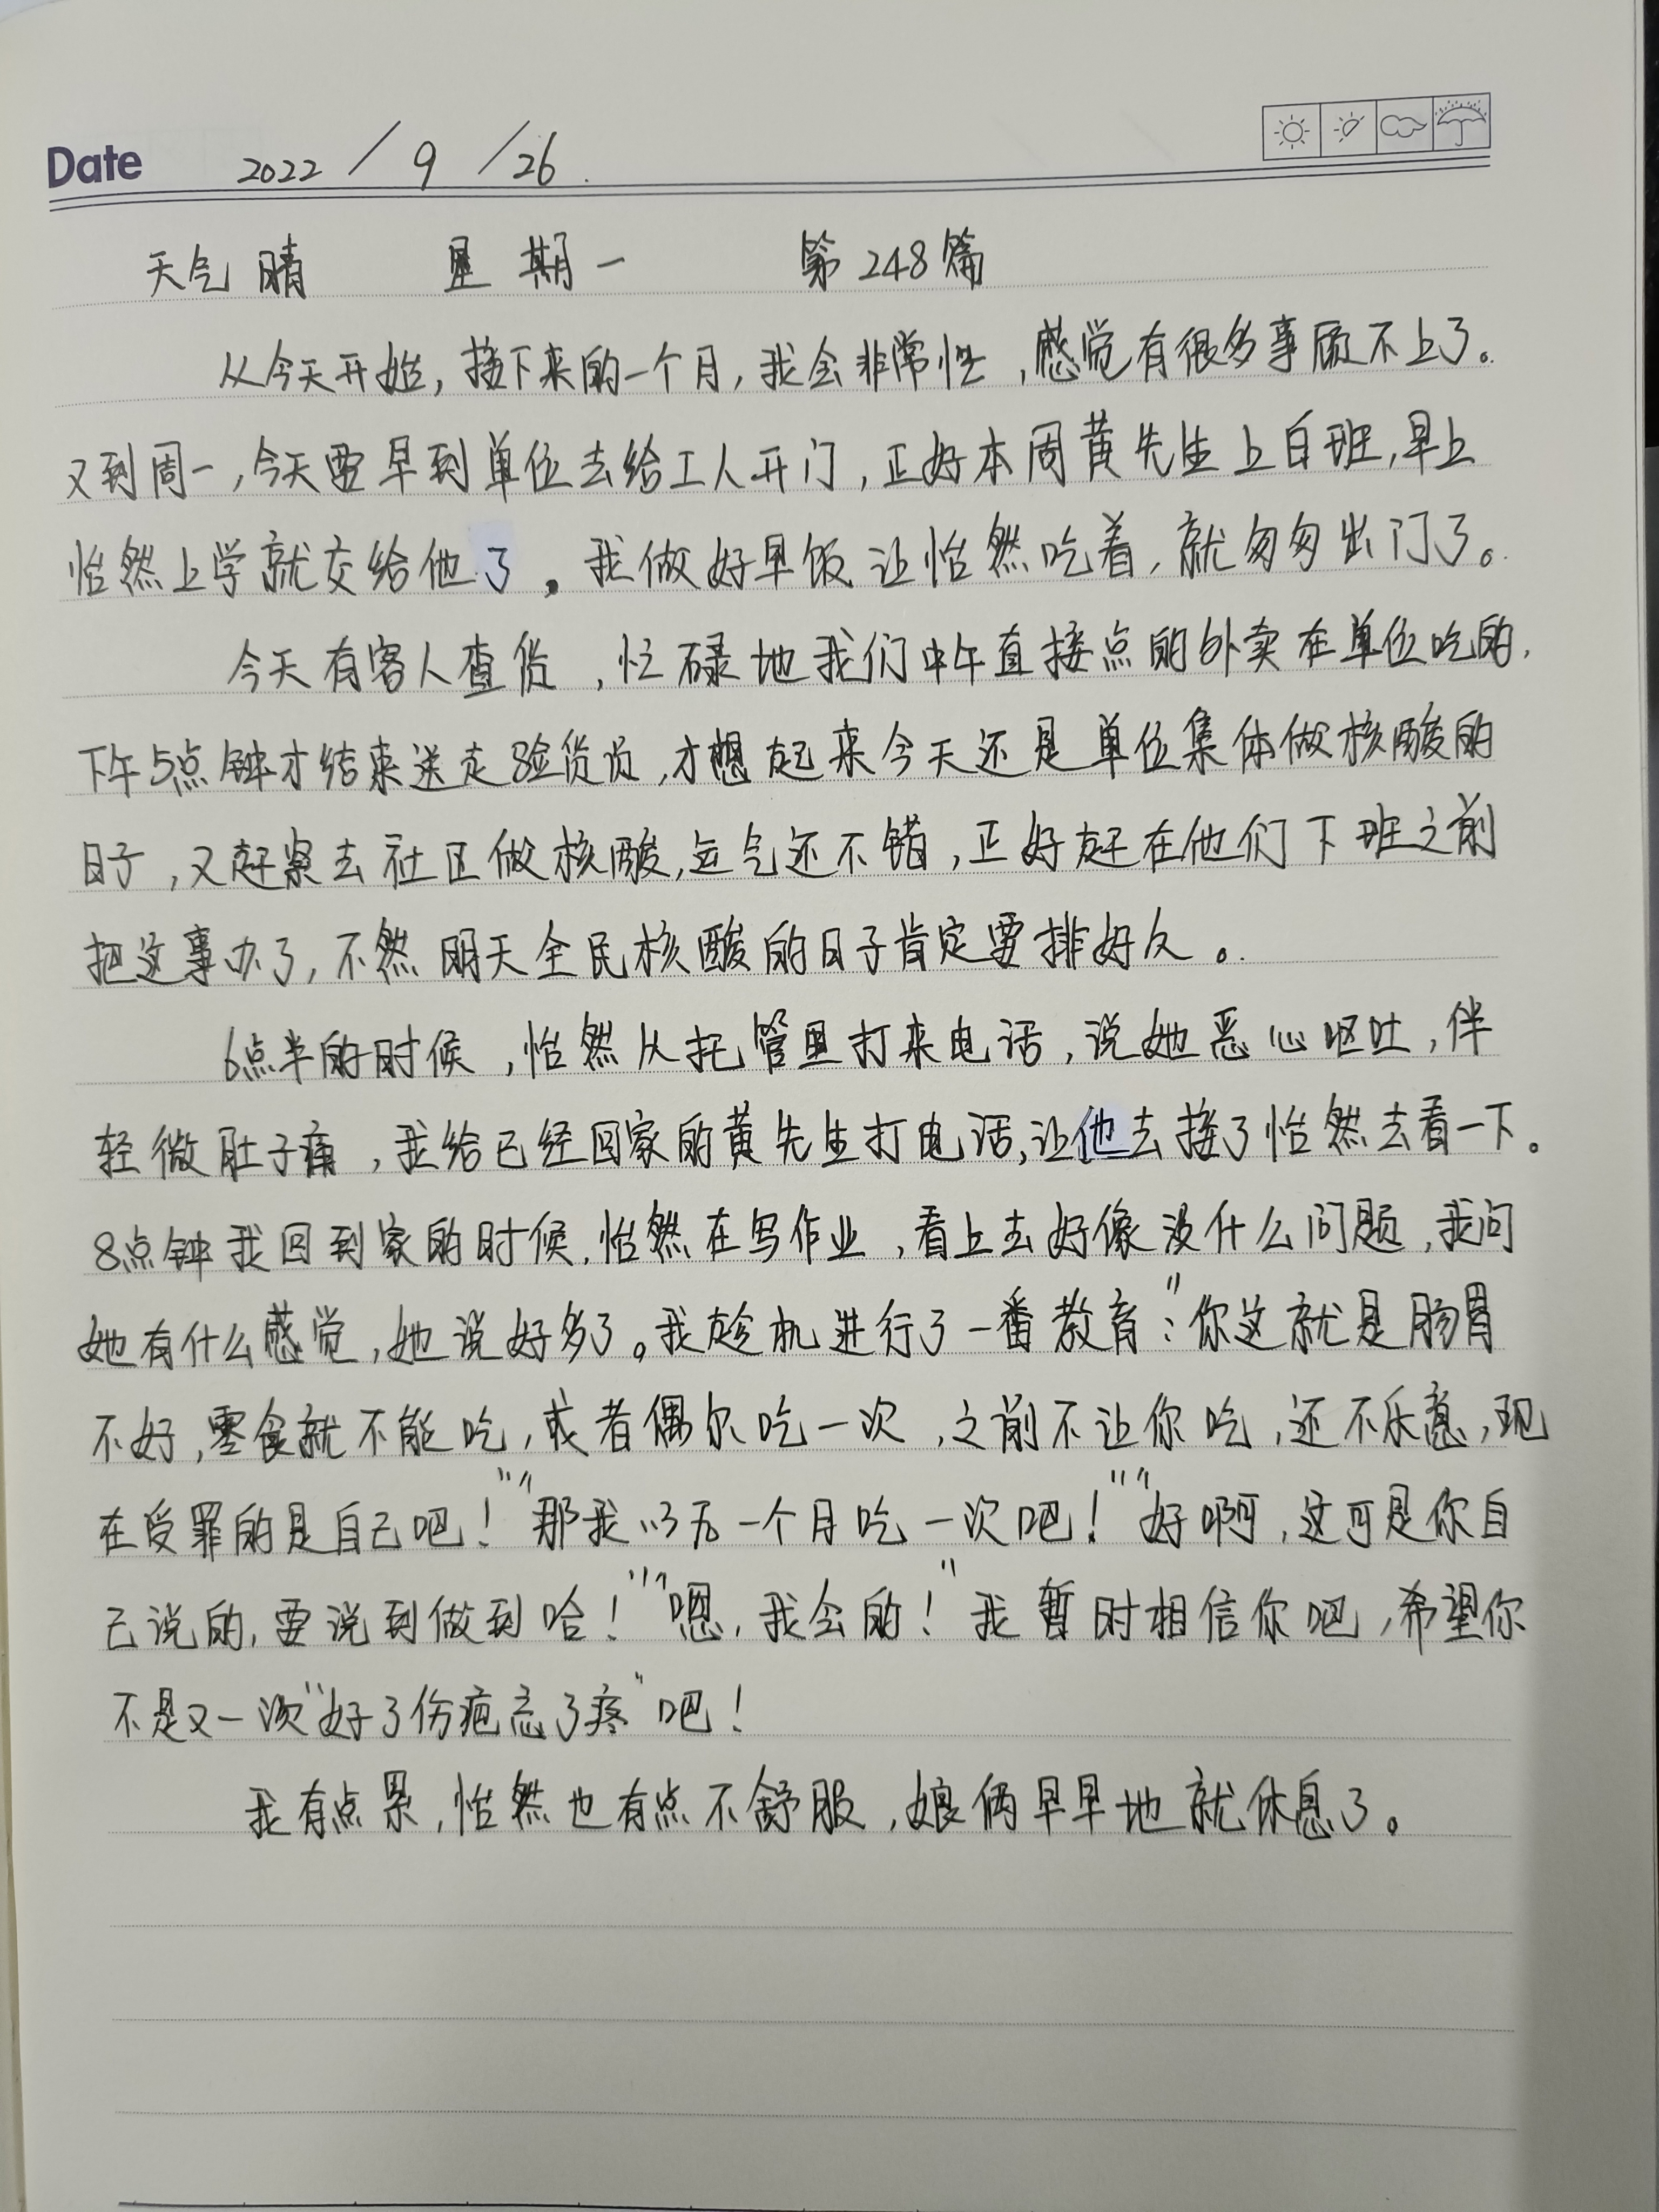 Date 2022 / 9 / 26
天气晴 星期一 第248篇
从今天开始，接下来的一个月，我会非常忙，感觉有很多事顾不上了。
又到周一，今天要早到单位去给工人开门，正好本周黄先生上白班，早上
怡然上学就交给他了。我做好早饭让怡然吃着，就匆匆出门了。
今天有客人查货，忙碌地我们中午直接点的外卖在单位吃的，
下午5点钟才结束送走验货员，才想起来今天还是单位集体做核酸的
日子，又赶紧去社区做核酸，运气还不错，正好赶在他们下班之前
把这事办了，不然明天全民核酸的日子肯定要排好久。
6点半的时候，怡然从托管里打来电话，说她恶心呕吐，伴
轻微肚子痛，我给已经回家的黄先生打电话，让他去接了怡然去看一下。
8点钟我回到家的时候，怡然在写作业，看上去好像没什么问题，我问
她有什么感觉，她说好多了。我趁机进行了一番教育：“你这就是肠胃
不好，零食就不能吃，或者偶尔吃一次，之前不让你吃，还不乐意，现
在受罪的是自己吧！”“那我以后一个月吃一次吧！”“好啊，这可是你自
己说的，要说到做到哈！”“嗯，我会的！”我暂时相信你吧，希望你
不是又一次“好了伤疤忘了疼”吧！
我有点累，怡然也有点不舒服，娘俩早早地就休息了。